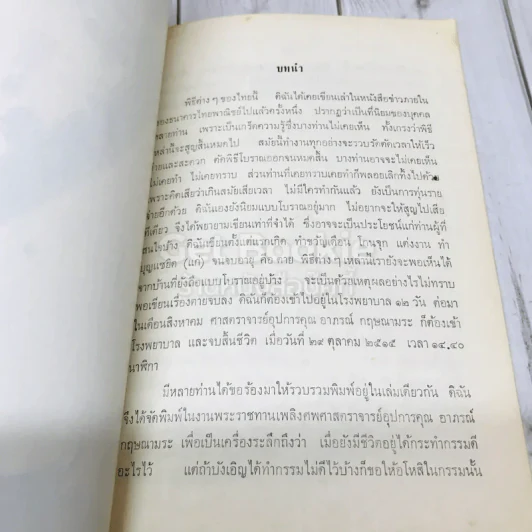 บทนำ
พิธีต่าง ๆ ของไทยนี้ ดิฉันได้เคยเขียนเล่าในหนังสือข่าวภายใน
ของธนาคารไทยพาณิชย์ไปแล้วครั้งหนึ่ง ปรากฏว่าเป็นที่นิยมของบุคคล
หลายท่าน เพราะเป็นเกร็ดความรู้ซึ่งบางท่านไม่เคยเห็น ทั้งเกรงว่าพิธี
เหล่านี้จะสูญสิ้นหมดไป สมัยนี้ทำงานทุกอย่างจะรวบรัดตัดเวลาให้เร็ว
และสะดวก ตัดพิธีโบราณออกจนหมดสิ้น บางท่านอาจจะไม่เคยเห็น
ไม่เคยทำ ไม่เคยทราบ ส่วนท่านที่เคยทราบเคยทำก็พลอยเลิกทิ้งไปด้วย
เพราะคิดเสียว่าเกินสมัยเสียเวลา ไม่มีใครทำกันแล้ว ยังเป็นการทุ่นราย
จ่ายอีกด้วย ดิฉันเองยังนิยมแบบโบราณอยู่มาก ไม่อยากจะให้สูญไปเสีย
ทีเดียว จึงได้พยายามเขียนเท่าที่จำได้ ซึ่งอาจจะเป็นประโยชน์แก่ท่านผู้ที่
สนใจบ้าง ดิฉันเขียนตั้งแต่แรกเกิด ทำขวัญเดือน โกนจุก แต่งงาน ทำ
บุญแซยิด (แก่) จนจบอายุ คือ ตาย พิธีต่าง ๆ เหล่านี้เรายังจะพอเห็นได้
จากบ้านที่ยังถือแบบโบราณอยู่บ้าง จะเป็นด้วยเหตุผลอย่างไรไม่ทราบ
พอเขียนเรื่องตายจบลง ดิฉันก็ต้องเข้าไปอยู่ในโรงพยาบาล ๑๒ วัน ต่อมา
ในเดือนสิงหาคม ศาสตราจารย์อุปการคุณ อาภรณ์ กฤษณามระ ก็ต้องเข้า
โรงพยาบาล และจบสิ้นชีวิต เมื่อวันที่ ๒๙ ตุลาคม ๒๕๑๕ เวลา ๑๔.๔๐
นาฬิกา
มีหลายท่านได้ขอร้องมาให้รวบรวมพิมพ์อยู่ในเล่มเดียวกัน ดิฉัน
จึงได้จัดพิมพ์ในงานพระราชทานเพลิงศพศาสตราจารย์อุปการคุณ อาภรณ์
กฤษณามระ เพื่อเป็นเครื่องระลึกถึงว่า เมื่อยังมีชีวิตอยู่ได้กระทำกรรมดี
อะไรไว้ แต่ถ้าบังเอิญได้ทำกรรมไม่ดีไว้บ้างก็ขอให้อโหสิในกรรมนั้น